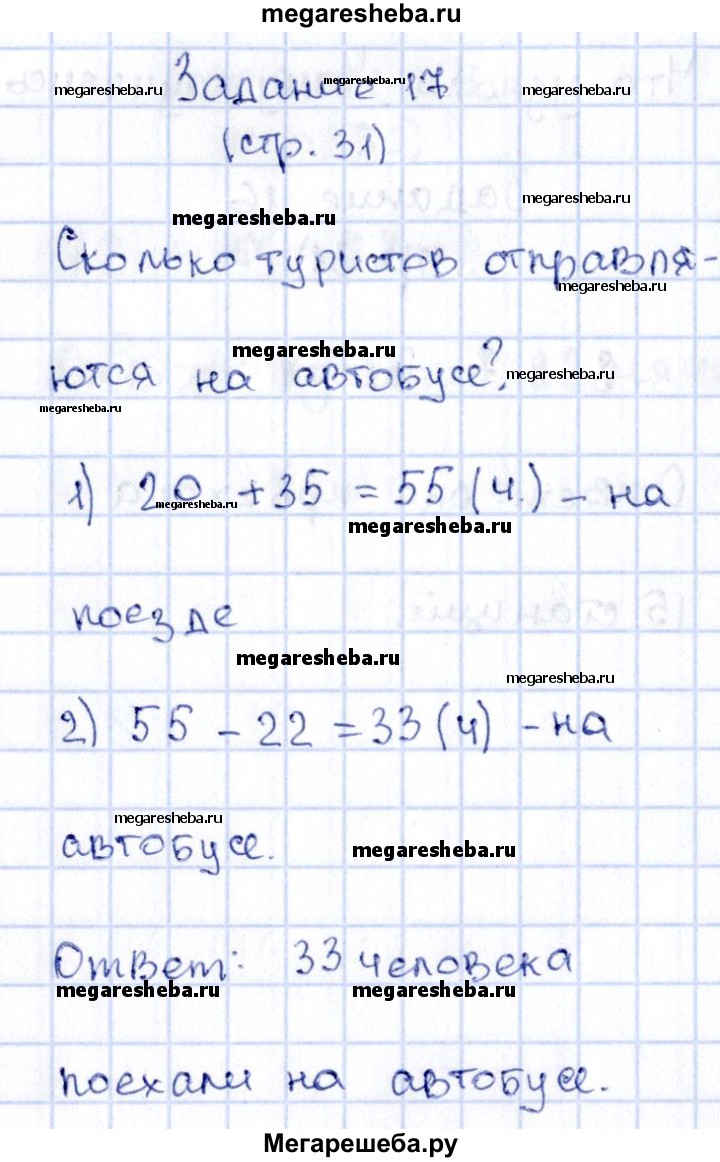 megaresheba.ru
Задание 17
megaresheba.ru megaresheba.ru megaresheba.ru
(стр. 31)
megaresheba.ru
megaresheba.ru
Сколько туристов отправля-
megaresheba.ru
megaresheba.ru
ются на автобусе?
megaresheba.ru
megaresheba.ru
1) 20 + 35 = 55 (ч.) - на
megaresheba.ru
megaresheba.ru
поезде
megaresheba.ru
megaresheba.ru
2) 55 - 22 = 33 (ч) - на
megaresheba.ru
автобусе.
megaresheba.ru
Ответ: 33 человека
megaresheba.ru megaresheba.ru
поехали на автобусе.
Мегарешеба.ру